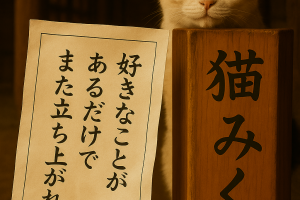 好きなことが
あるだけで
また立ち上がれ
猫みく